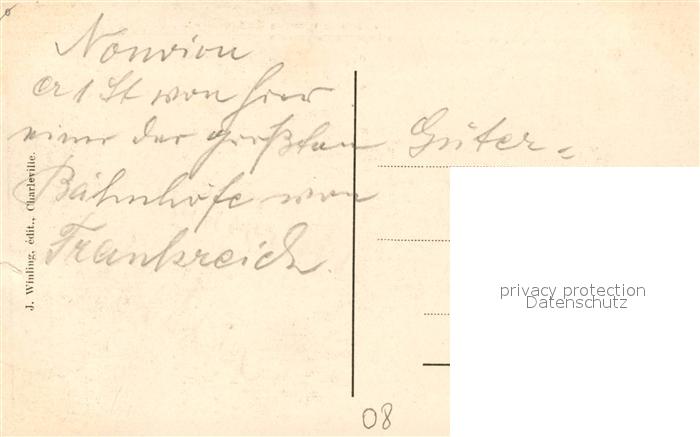 Nouvion
ca 1 St von hier
einer der größten Güter-
Bahnhöfe von
Frankreich
J. Winling, édit., Charleville.
privacy protection
Datenschutz
08